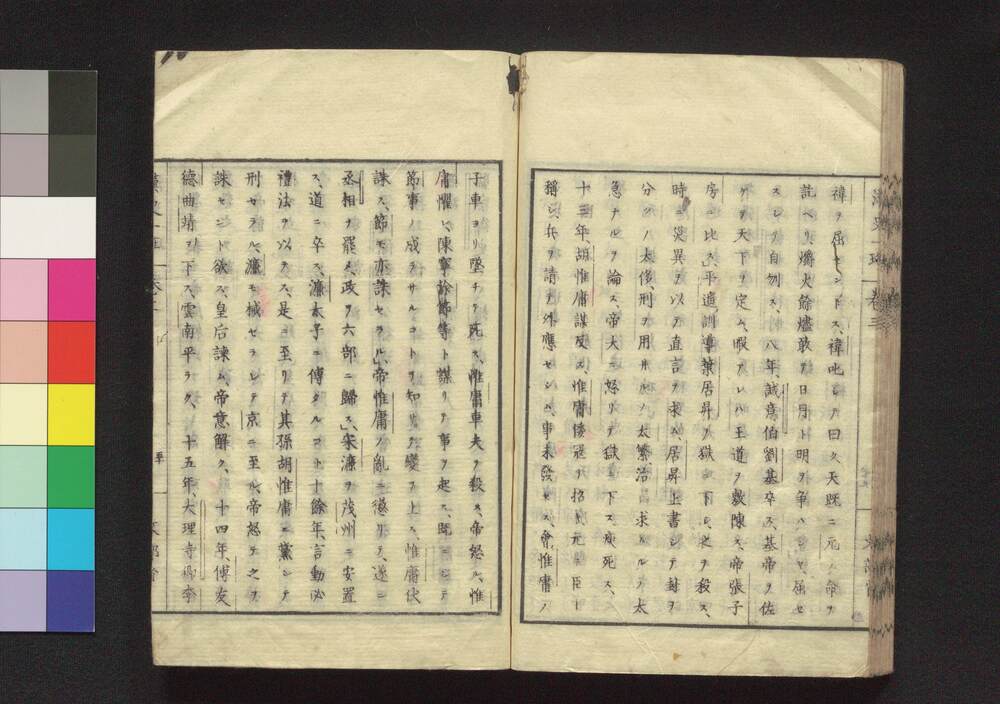 禕ヲ屈セントス、禕叱シテ曰ク天既ニ元ノ命ヲ
訖ヘリ、爝火餘燼敢テ日月ト明ヲ争ハンヤ、屈セ
スシテ自刎ス、八年、誠意伯劉基卒ス、基帝ヲ佐
ケテ天下ヲ定ム、暇アレハ王道ヲ敷陳ス、帝張子
房ニ比ス、平遥訓導葉居昇ヲ獄ニ下シ、之ヲ殺ス、
時ニ災異ヲ以テ直言ヲ求ム、居昇上書シテ封ヲ
分ツノ太侈、刑ヲ用ルノ太繁、治ヲ求ムルノ太
急ナルヲ論ス、帝大ニ怒リテ獄ニ下ス、瘐死ス、
十三年、胡惟庸謀反ス、惟庸倭寇ヲ招キ元ニ臣ト
稱シ、兵ヲ請テ外應セシム、事未發セス、會惟庸ノ
子車ヨリ墜チテ死ス、惟庸車夫ヲ殺ス、帝怒ル、惟
庸懼レ、陳寧涂節等ト謀リテ事ヲ起ス、既ニシテ
節事ノ成ラサルコトヲ知リテ變ヲ上ス、惟庸伏
誅ス、節モ亦誅セラル、帝惟庸ノ亂ニ懲リテ、遂ニ
丞相ヲ罷メ、政ヲ六部ニ歸ス、宋濂ヲ茂州ニ安置
ス、道ニ卒ス、濂太子ニ傅タルコト十餘年、言動必
禮法ヲ以テス、是ニ至リテ其孫胡惟庸ニ黨シテ
刑セラル、濂モ械セラレテ京ニ至ル、帝怒テ之ヲ
誅セント欲ス、皇后諫ム、帝意解ク、十四年、傅友
德曲靖ヲ下ス、雲南平ラク、十五年、大理寺卿李